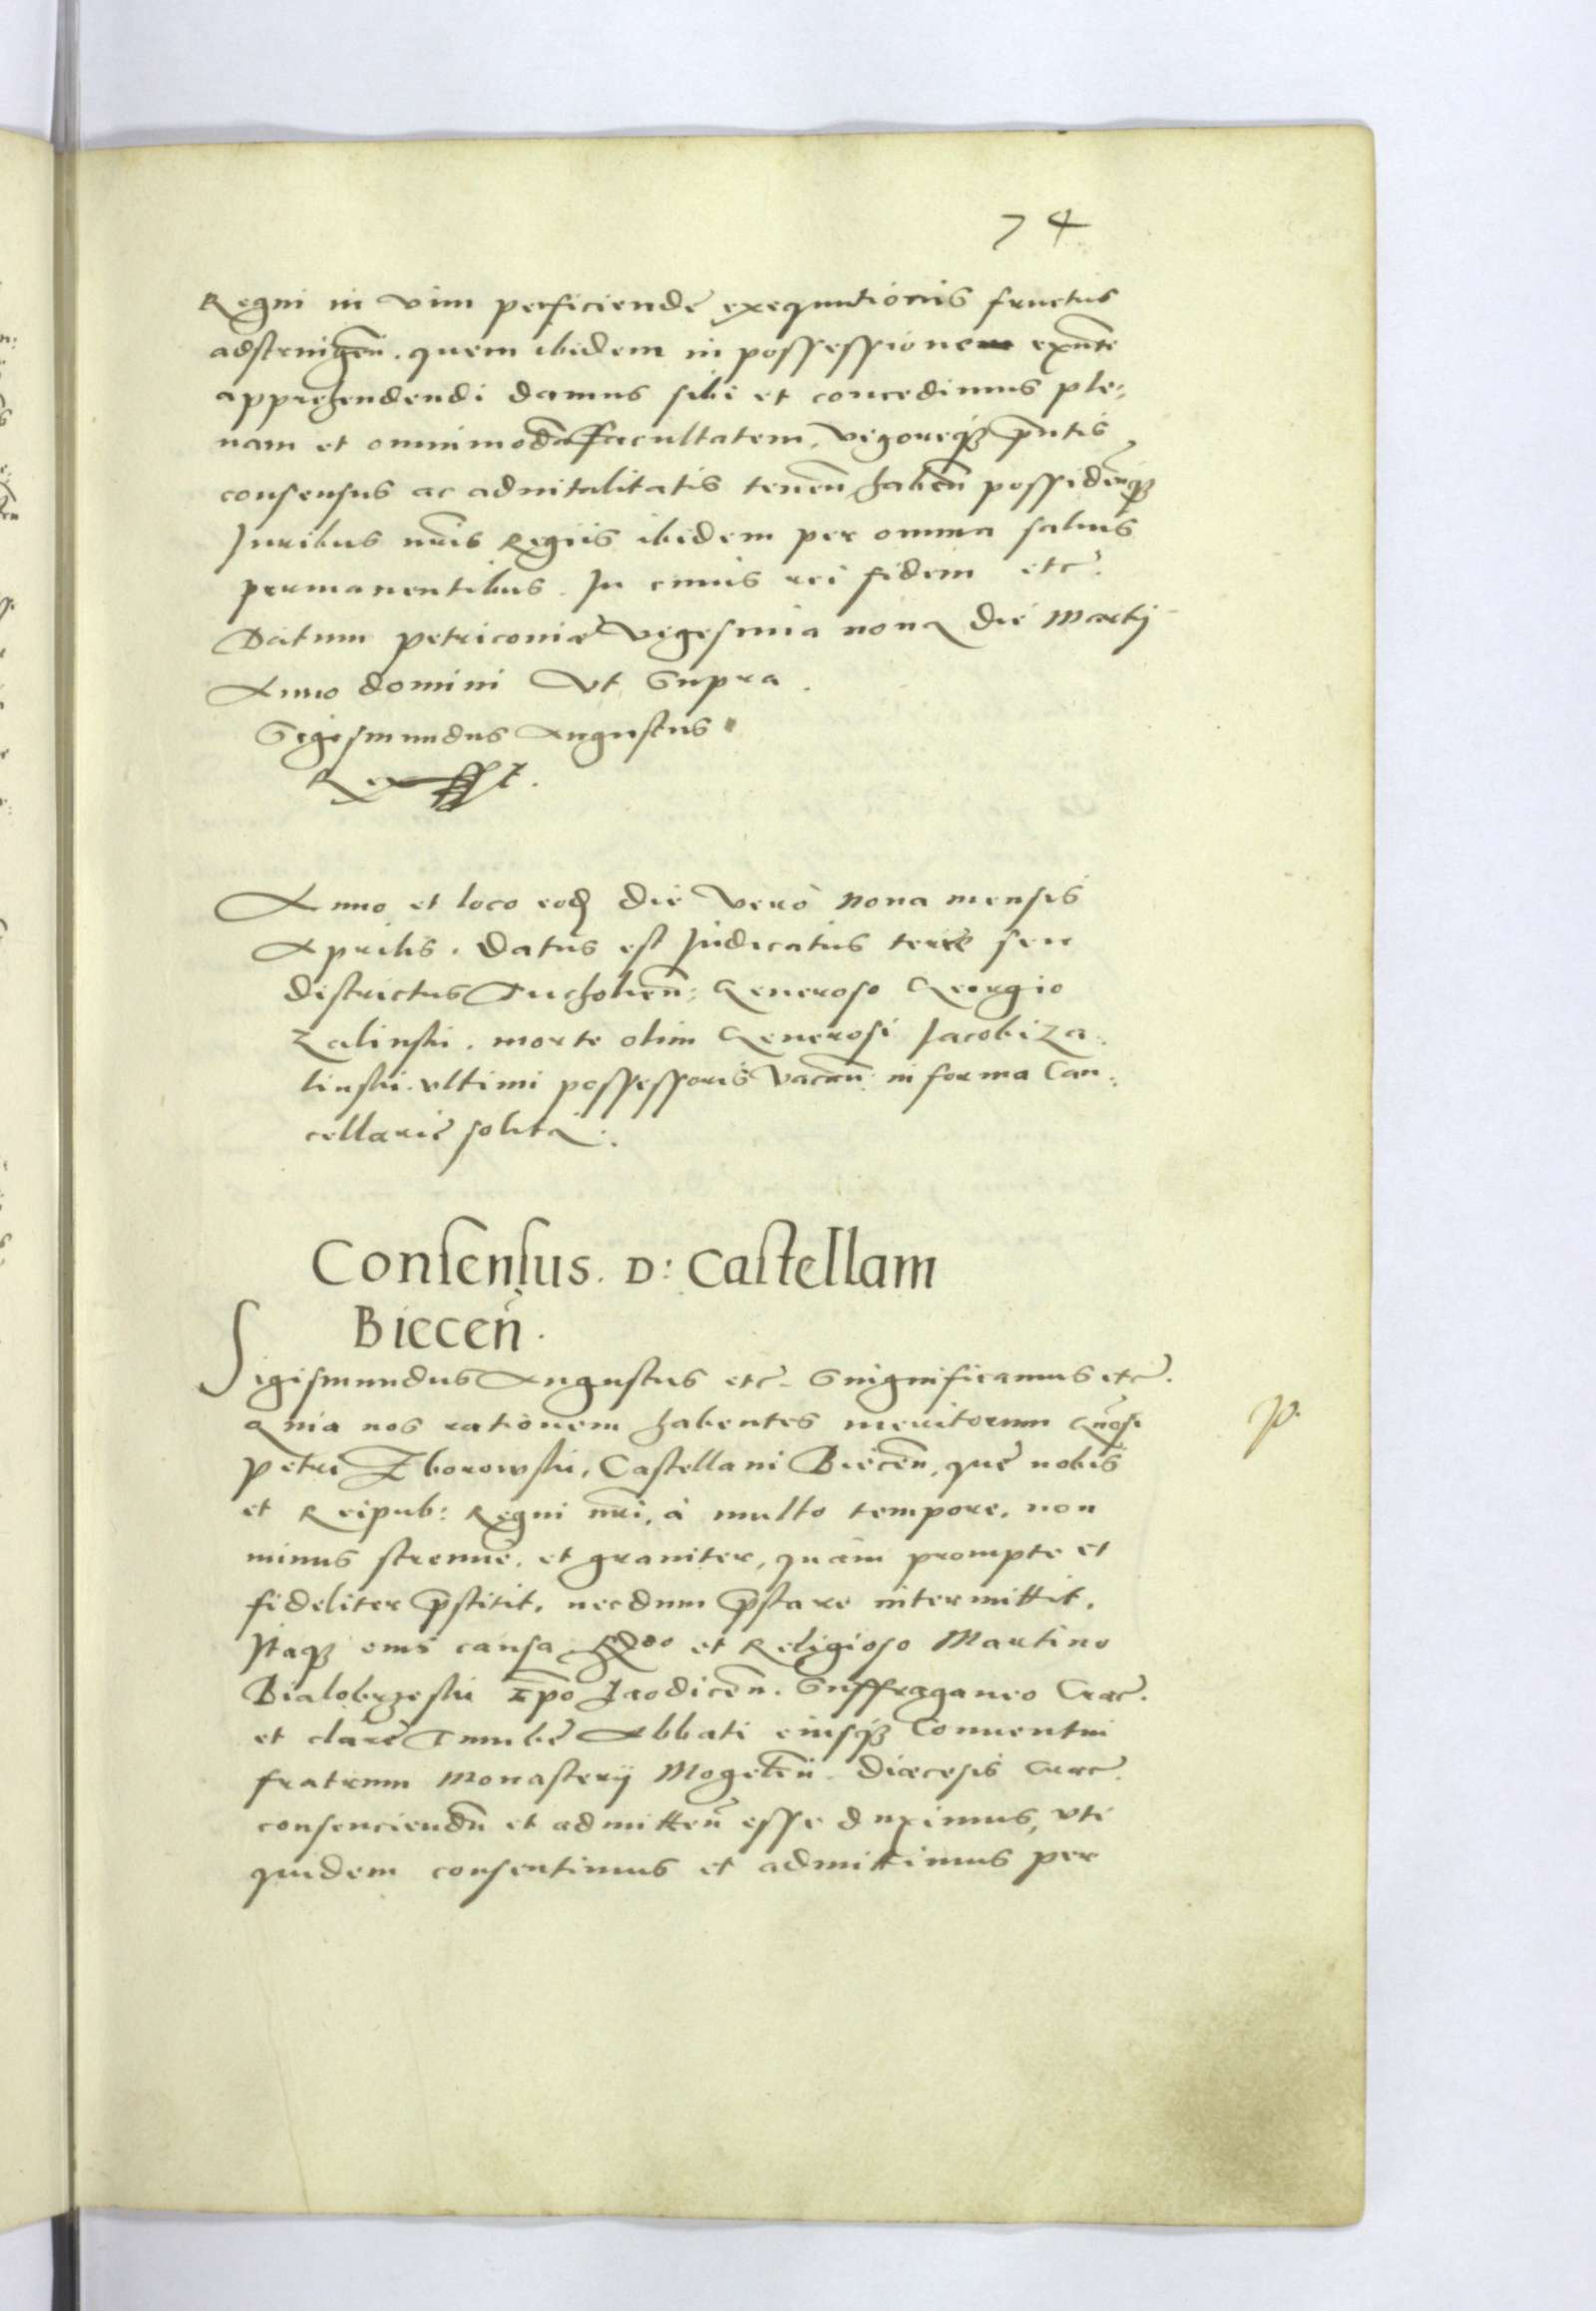 74
Regni in vim perficiende exequutionis fructus
adstringeñ. quem ibidem in possessionem exñte
apprehendendi damus sibi et concedimus ple:
nam et omnimodā facultatem, vigoreqȝ p̄ntis
consensus ac aduitalitatis teneñ habeñ possideñqȝ
Juribus nr̄is Regiis ibidem per omnia saluis
permanentibus. In cuius rei fidem etc.
Datum petricouiæ vigesima nona die Martij
Anno domini Vt Supra.
Sigismundus Augustus
Rex sst.
Anno et loco eod die Vero nona mensis
Aprilis. Datus est Judicatus terre seu
districtus Tucholieñ: Generoso Georgio
Zalinski. morte olim Generosi Jacobi Za:
linski. vltimi possessoris vacañ in forma Can:
cellarie solita:.
Consensus. D: Castellam
Bieceñ.
Sigismundus Augustus etc. Snignificamus etc.
Quia nos rationem habentes meritorum Gnõsi
petri Zborowski, Castellani Bieceñ, que nobis
et Reipub: Regni nr̄i, à multo tempore, non
minus strenue, et grauiter, quàm prompte et
fideliter p̄stitit, necdum p̄stare intermittit.
Itaqȝ eius causa Rdo et Religioso Martino
Bialobrzeski Ep̄o Laodiceñ. Suffraganeo Crac.
et clare Tumbe Abbati eiusqȝ Conuentui
fratrum Monasterij Mogileñ. diœcesis Crac.
consenciendū et admitteñ esse duximus, vti
quidem consentimus et admittimus per
p.